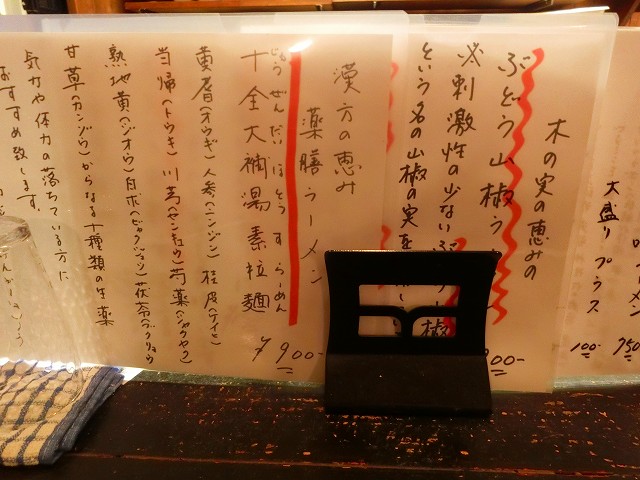 ーメン
750-
大盛り プラス
100-
木の実の恵みの
ぶどう山椒ラ
00-
※刺激性の少ないぶどう 椒
という名の山椒の実を
漢方の恵み
薬膳ラーメン
じゅうぜんだいほとうすらーめん
十全大補湯素拉麺
¥900-
黄耆(オウギ)人参(ニンジン)桂皮(ケイヒ)
当帰(トウキ)川芎(センキュウ)芍薬(シャクヤク)
熟地黄(ジオウ)白朮(ビャクジュツ)茯苓(ブクリョウ)
甘草(カンゾウ)からなる十種類の生薬
気力や体力の落ちている方に
おすすめ致します。